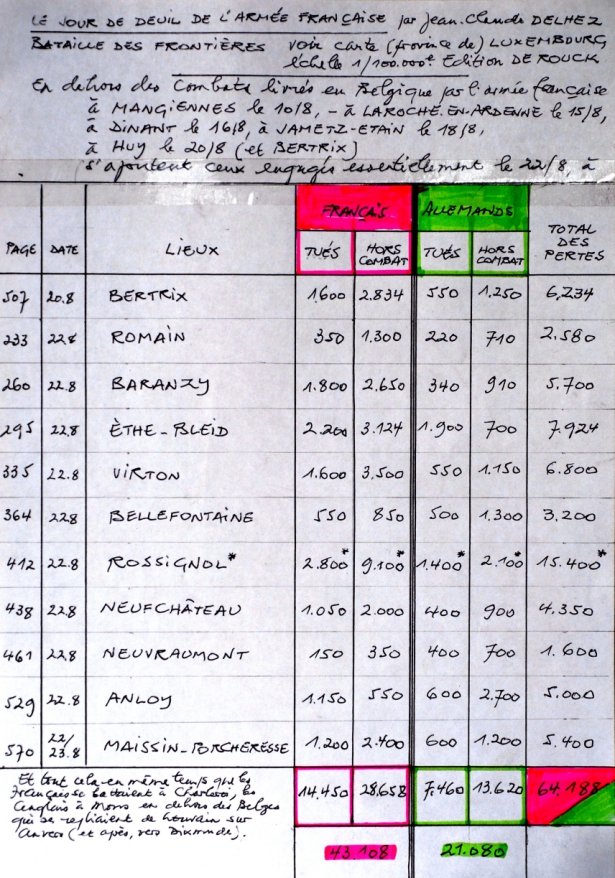 LE JOUR DE DEUIL DE L'ARMÉE FRANÇAISE par Jean-Claude DELHEZ
BATAILLE DES FRONTIÈRES voir carte (province de) LUXEMBOURG
échelle 1/100.000e Edition DE ROUCK
En dehors des Combats livrés en Belgique par l'armée française
à MANGIENNES le 10/8, - à LAROCHE-EN-ARDENNE le 15/8,
à DINANT le 16/8, à JAMETZ-ETAIN le 18/8,
à HUY le 20/8 (et BERTRIX)
s'ajoutent ceux engagés essentiellement le 22/8, à
FRANÇAIS ALLEMANDS
PAGE DATE LIEUX TUÉS HORS COMBAT TUÉS HORS COMBAT TOTAL DES PERTES
507 20.8 BERTRIX 1.600 2.834 550 1.250 6.234
233 22.8 ROMAIN 350 1.300 220 710 2.580
260 22.8 BARANZY 1.800 2.650 340 910 5.700
295 22.8 ÈTHE-BLEID 2.200 3.124 1.900 700 7.924
335 22.8 VIRTON 1.600 3.500 550 1.150 6.800
364 22.8 BELLEFONTAINE 550 850 500 1.300 3.200
412 22.8 ROSSIGNOL* 2.800* 9.100* 1.400* 2.100* 15.400*
438 22.8 NEUFCHÂTEAU 1.050 2.000 400 900 4.350
461 22.8 NEUVRAUMONT 150 350 400 700 1.600
529 22.8 ANLOY 1.150 550 600 2.700 5.000
570 22/23.8 MAISSIN-PORCHERESSE 1.200 2.400 600 1.200 5.400
14.450 28.658 7.460 13.620 64.188
Et tout cela en même temps que les
Français se battaient à Charleroi, les
Anglais à Mons en dehors des Belges
qui se repliaient de Louvain sur
Anvers (et après, vers Dixmude).
43.108 21.080